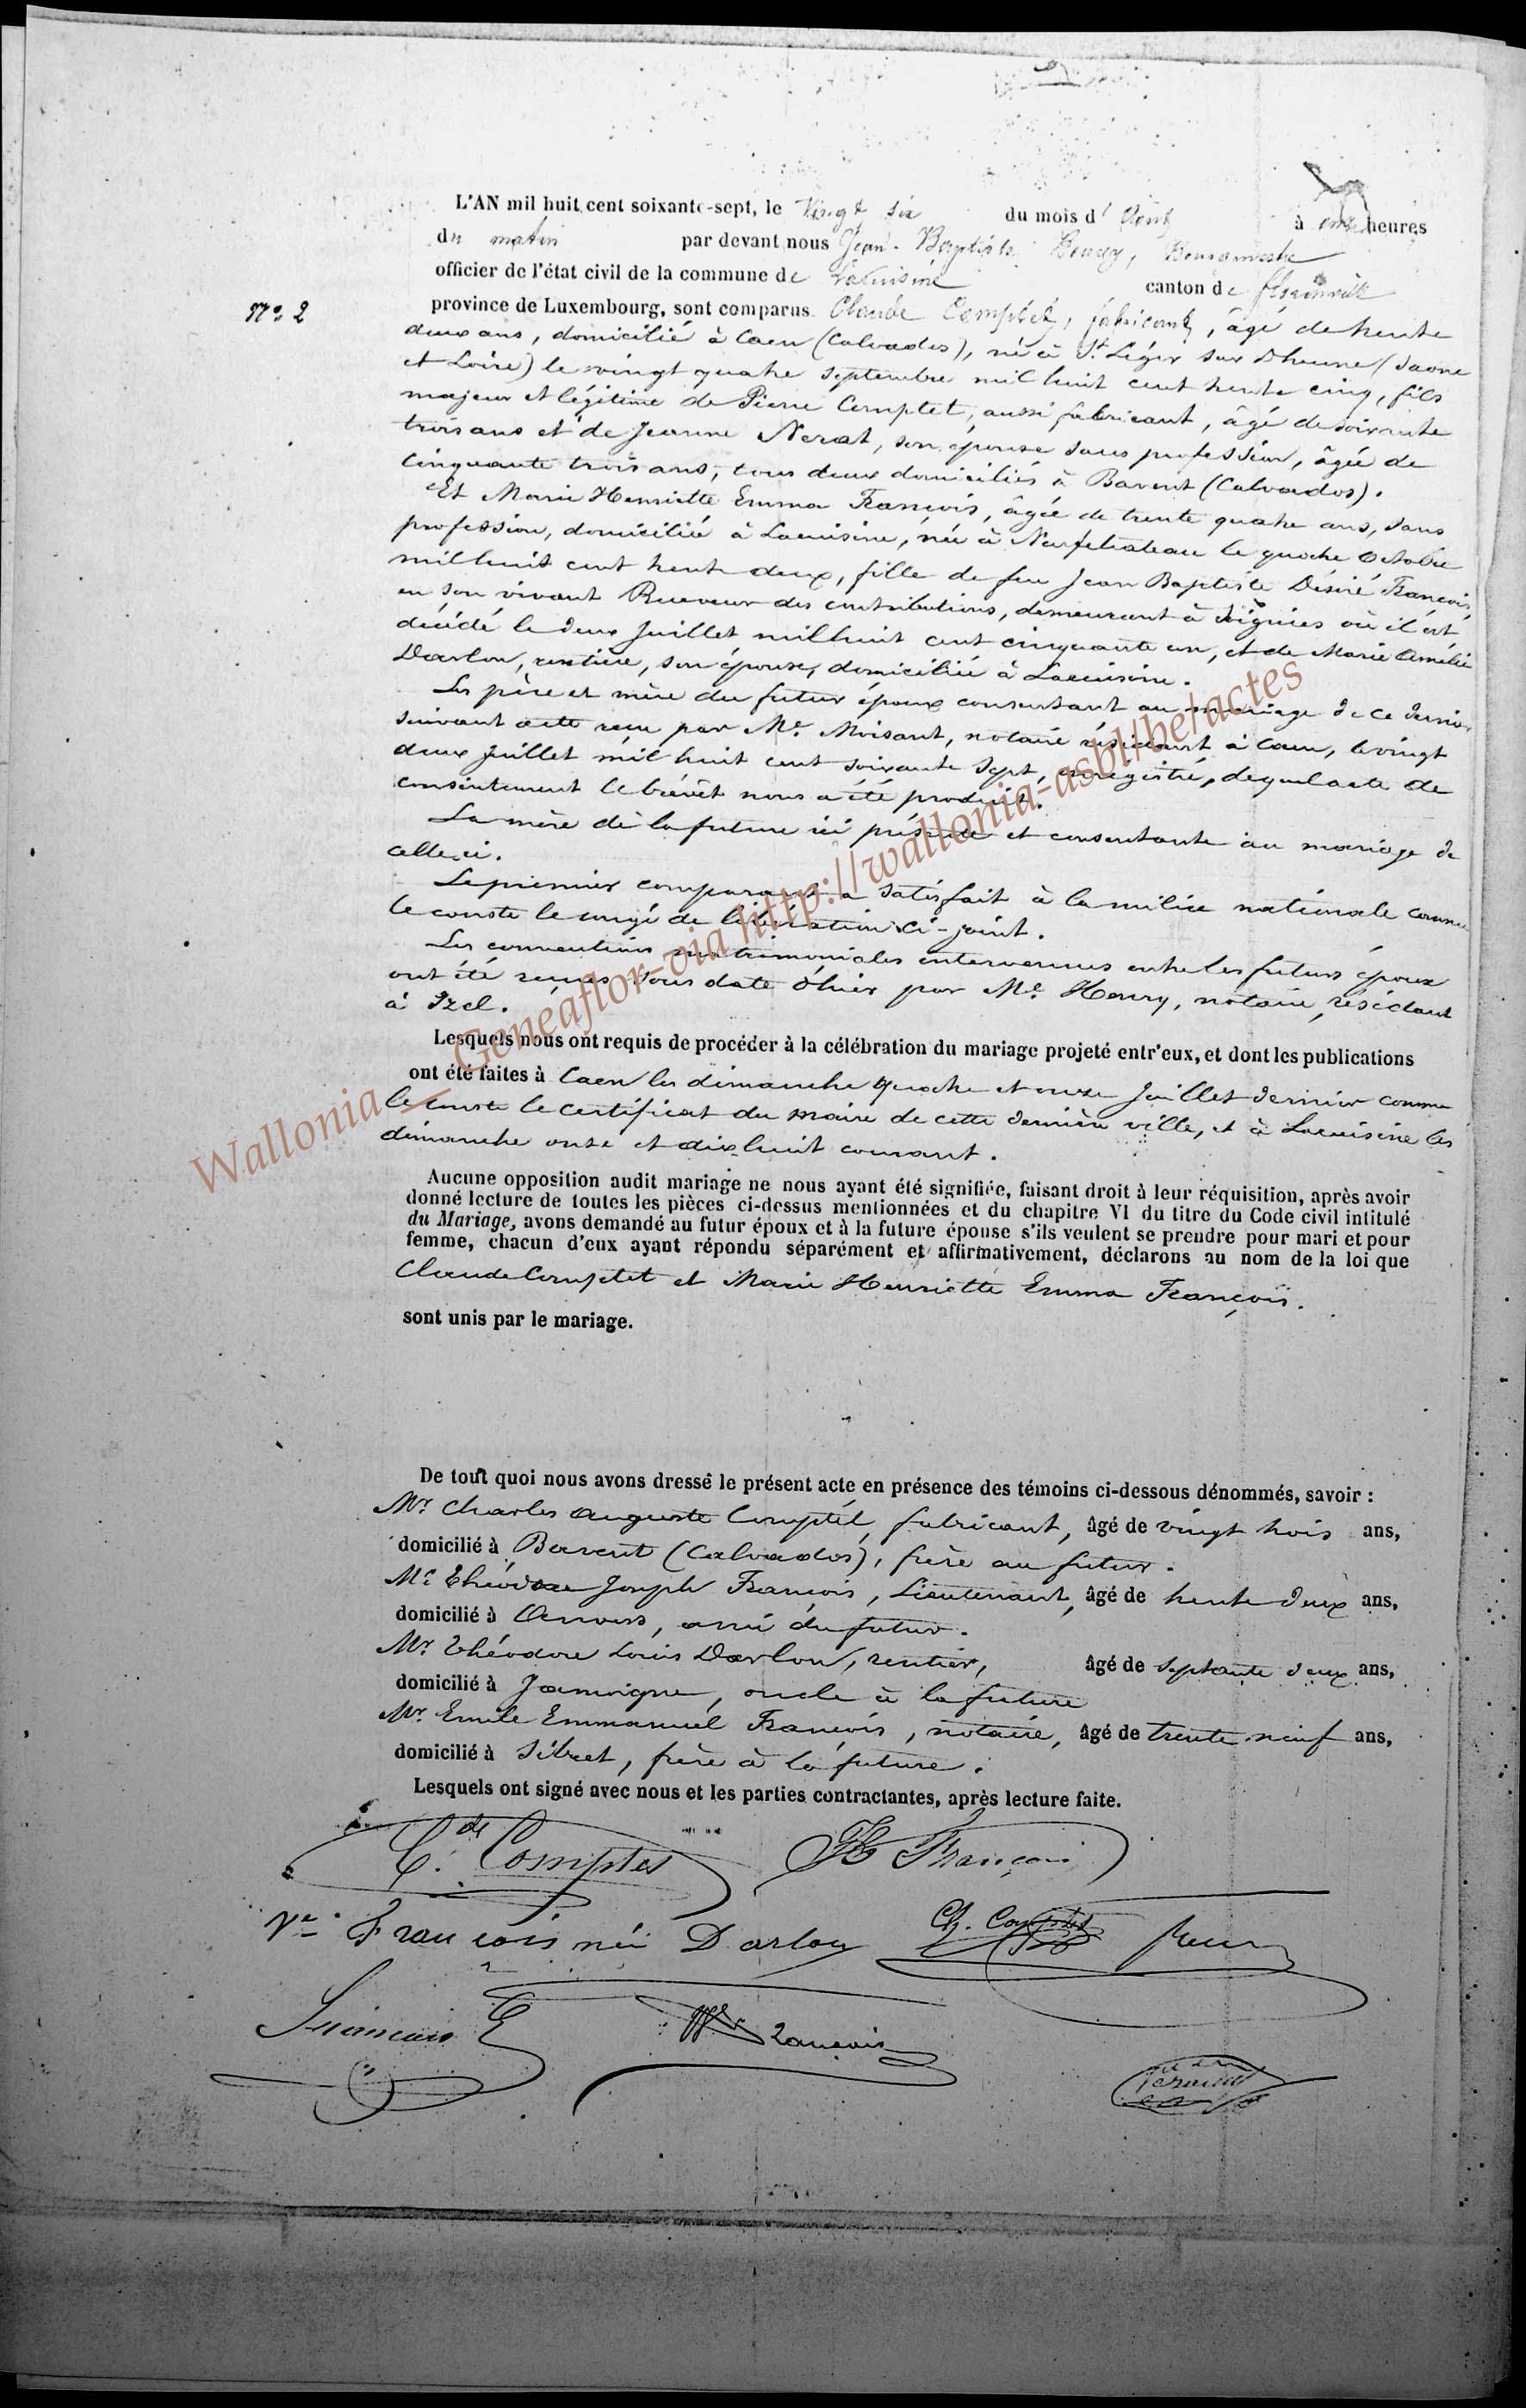 L'AN mil huit cent soixante-sept, le Vingt six du mois d' Août à onze heures
du matin par devant nous Jean-Baptiste Bourgmestre
officier de l'état civil de la commune de Lacuisine canton de Florenville
N° 2
province de Luxembourg, sont comparus Claude Comptet, fabricant, âgé de trente
deux ans, domicilié à Caen (Calvados), né à St Léger sur Dheune (Saone
et Loire) le vingt quatre septembre mil huit cent trente cinq, fils
majeur et légitime de Pierre Comptet, aussi fabricant, âgé de soixante
trois ans et de Jeanne Nerat, son épouse sans profession, âgée de
cinquante trois ans, tous deux domiciliés à Bavent (Calvados).
Et Marie Henriette Emma François, âgée de trente quatre ans, sans
profession, domiciliée à Lacuisine, née à Neufchateau le quatre Octobre
mil huit cent trente deux, fille de feu Jean Baptiste Désiré François,
en son vivant Receveur des contributions, demeurant à Soignies où il est
décédé le deux Juillet mil huit cent cinquante un, et de Marie Amélie
Darlon, rentière, son épouse, domiciliée à Lacuisine.
Les père et mère du futur époux consentant au mariage de ce dernier,
suivant acte reçu par Me Moisant, notaire résidant à Caen, le vingt
deux Juillet mil huit cent soixante sept, enregistré, duquel acte de
consentement le brévêt nous a été produit.
La mère de la future ici présente et consentante au mariage de
celle-ci.
Le premier comparant a satisfait à la milice nationale comme
le conste le congé de libération ci-joint.
Les conventions matrimoniales intervenues entre les futurs époux
ont été reçues sous date d'hier par Me Henry, notaire, résidant
à Izel.
Lesquels nous ont requis de procéder à la célébration du mariage projeté entr'eux, et dont les publications
ont été faites à Caen les dimanche quatre et onze Juillet dernier comme
le conste le certificat du maire de cette dernière ville, et à Lacuisine les
dimanche onze et dix huit courant.
Aucune opposition audit mariage ne nous ayant été signifiée, faisant droit à leur réquisition, après avoir
donné lecture de toutes les pièces ci-dessus mentionnées et du chapitre VI du titre du Code civil intitulé
du Mariage, avons demandé au futur époux et à la future épouse s'ils veulent se prendre pour mari et pour
femme, chacun d'eux ayant répondu séparément et affirmativement, déclarons au nom de la loi que
Claude Comptet et Marie Henriette Emma François.
sont unis par le mariage.
De tout quoi nous avons dressé le présent acte en présence des témoins ci-dessous dénommés, savoir :
Mr Charles Auguste Comptet, fabricant, âgé de vingt trois ans,
domicilié à Bavent (Calvados), frère au futur.
Mr Théodore Joseph François, Lieutenant, âgé de trente deux ans,
domicilié à Anvers, ami du futur.
Mr Théodore Louis Darlon, rentier, âgé de septante deux ans,
domicilié à Jamoigne, oncle à la future
Mr Emile Emmanuel François, notaire, âgé de trente neuf ans,
domicilié à Sibret, frère à la future.
Lesquels ont signé avec nous et les parties contractantes, après lecture faite.
Cde Comptet H François
Ve François née Darlon Ch. Comptet
François E François
Wallonia - Geneaflor-via http://wallonia-asbl/be/actes